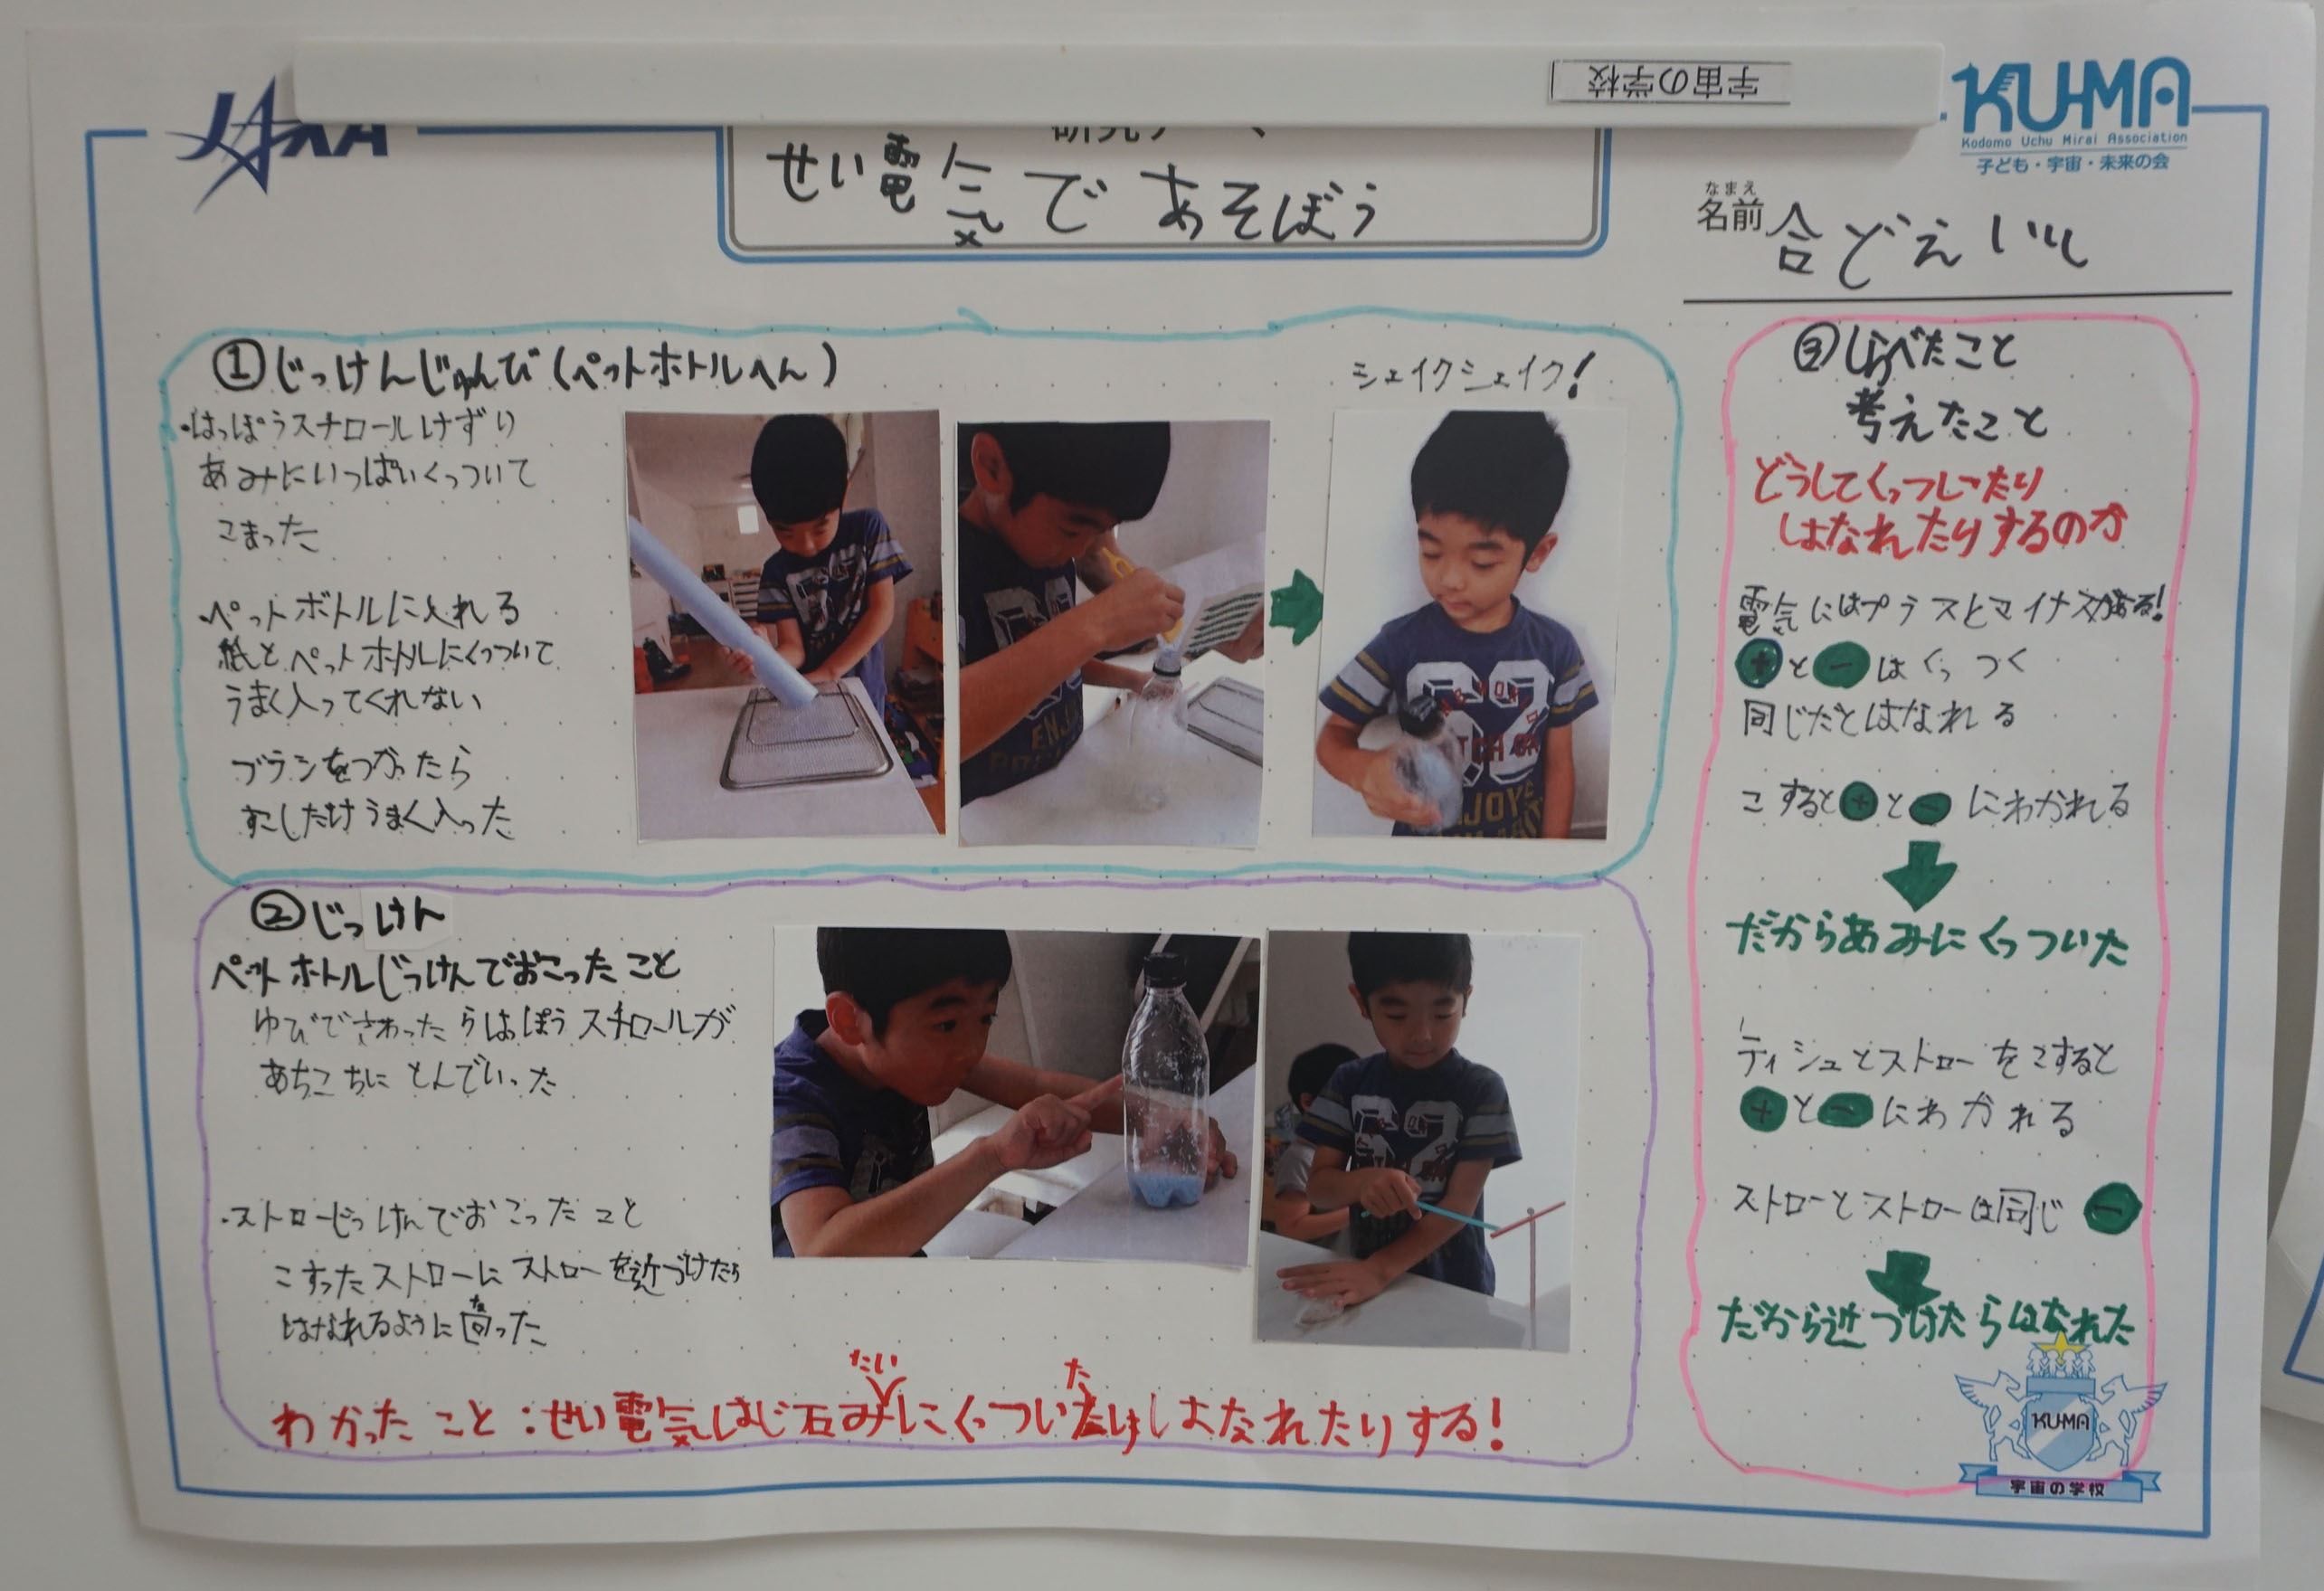 宇宙の学校
JAXA
KU-MA
Kodomo Uchu Mirai Association
子ども・宇宙・未来の会
研究テーマ
せい電気であそぼう
なまえ
名前 合どえいし
①じっけんじゅんび(ペットボトルへん)
・はっぽうスチロールけずり
あみにいっぱいくっついて
こまった
・ペットボトルに入れる
紙とペットボトルにくっついて
うまく入ってくれない
ブラシをつかったら
すこしだけうまく入った
シェイクシェイク!
②じっけん
ペットボトルじっけんでおこったこと
ゆびでさわったらはっぽうスチロールが
あちこちにとんでいった
・ストローじっけんでおこったこと
こすったストローにストローを近づけたら
はなれるように回った
わかったこと:せい電気はじ石みたいにくっついたりはなれたりする!
③しらべたこと
考えたこと
どうしてくっついたり
はなれたりするのか
電気にはプラスとマイナスがある!
+と-はくっつく
同じだとはなれる
こすると+と-にわかれる
だからあみにくっついた
ティシュとストローをこすると
+と-にわかれる
ストローとストローは同じ-
だから近づけたらはなれた
KU-MA
宇宙の学校